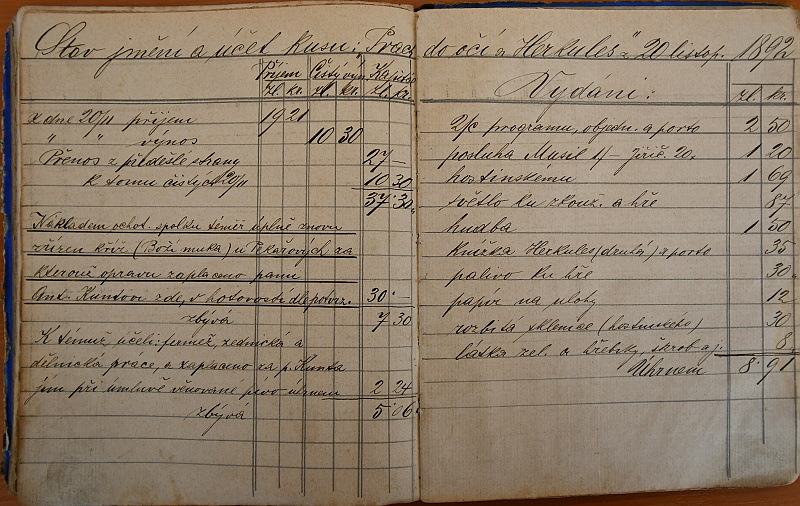 Stav jmění a účet kusu: „Prach do očí a Herkules“ 20 listop. 1892
Příjem Čistý výn. Kapital
zl. kr. zl. kr. zl. kr.
z dne 20/11 příjem 19 21
" " výnos 10 30
Přenos z předešlé strany 27 —
k tomu čistých 20/11 10 30
37 30
Nákladem ochot. spolku téměř úplně znovu
zřízen kříž (Boží muka) u Pekařových za
kterouž opravu zaplaceno panu
Ant. Kuntovi zde, v hotovosti dle potvrz. 30 —
zbývá 7 30
K témuž účeli: fermež, zednická a
dělnická práce, a zaplaceno za p. Kunta
jem při úmluvě věnované pivo úhrnem 2 24
zbývá 5 06
Vydání:
zl. kr.
2/c programu, objedn. a porto 2 50
posluha Musil 1/- Jiřič. 20. 1 20
hostinskému 1 69
světlo ku zkouš. a hře 87
hudba 1 50
knížka Herkules (druhá) a porto 35
palivo ku hře 30
papír na úlohy 12
rozbitá sklenice (hostinského) 30
látka zel. a hřebíky, škrob aj. 8
Úhrnem 8 91